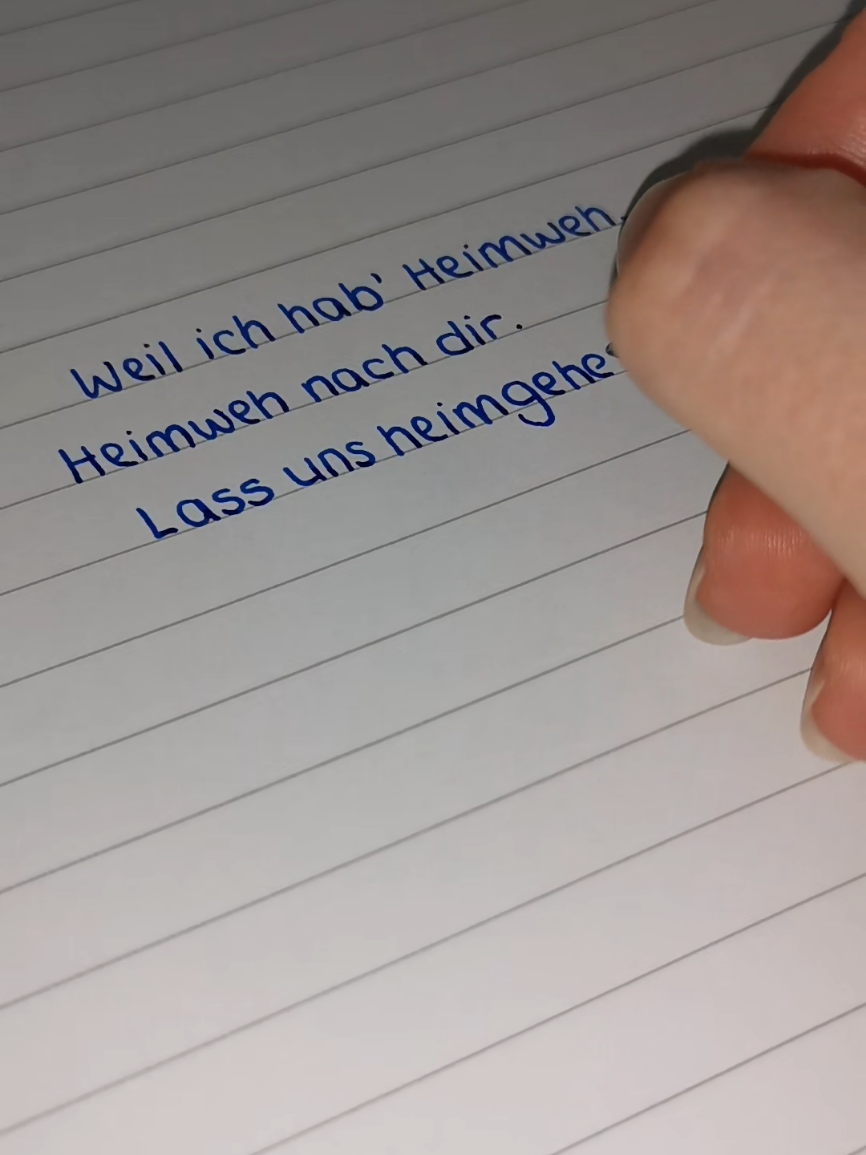 Weil ich hab' Heimweh.
Heimweh nach dir.
Lass uns heimgehe